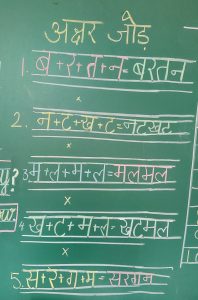 अक्षर जोड़
1. ब+र+त+न=बरतन
2. न+ट+ख+ट=नटखट
3. म+ल+म+ल=मलमल
4. ख+ट+म+ल=खटमल
5. स+र+ग+म=सरगम